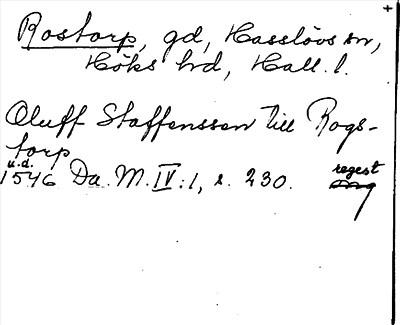 +
Rostorp, gd, Hasslövs sn,
Höks hd, Hall. l.
Oluff Staffenssen till Rogs-
torp
u.d.
1546 Da. M. IV:1, s. 230. regest